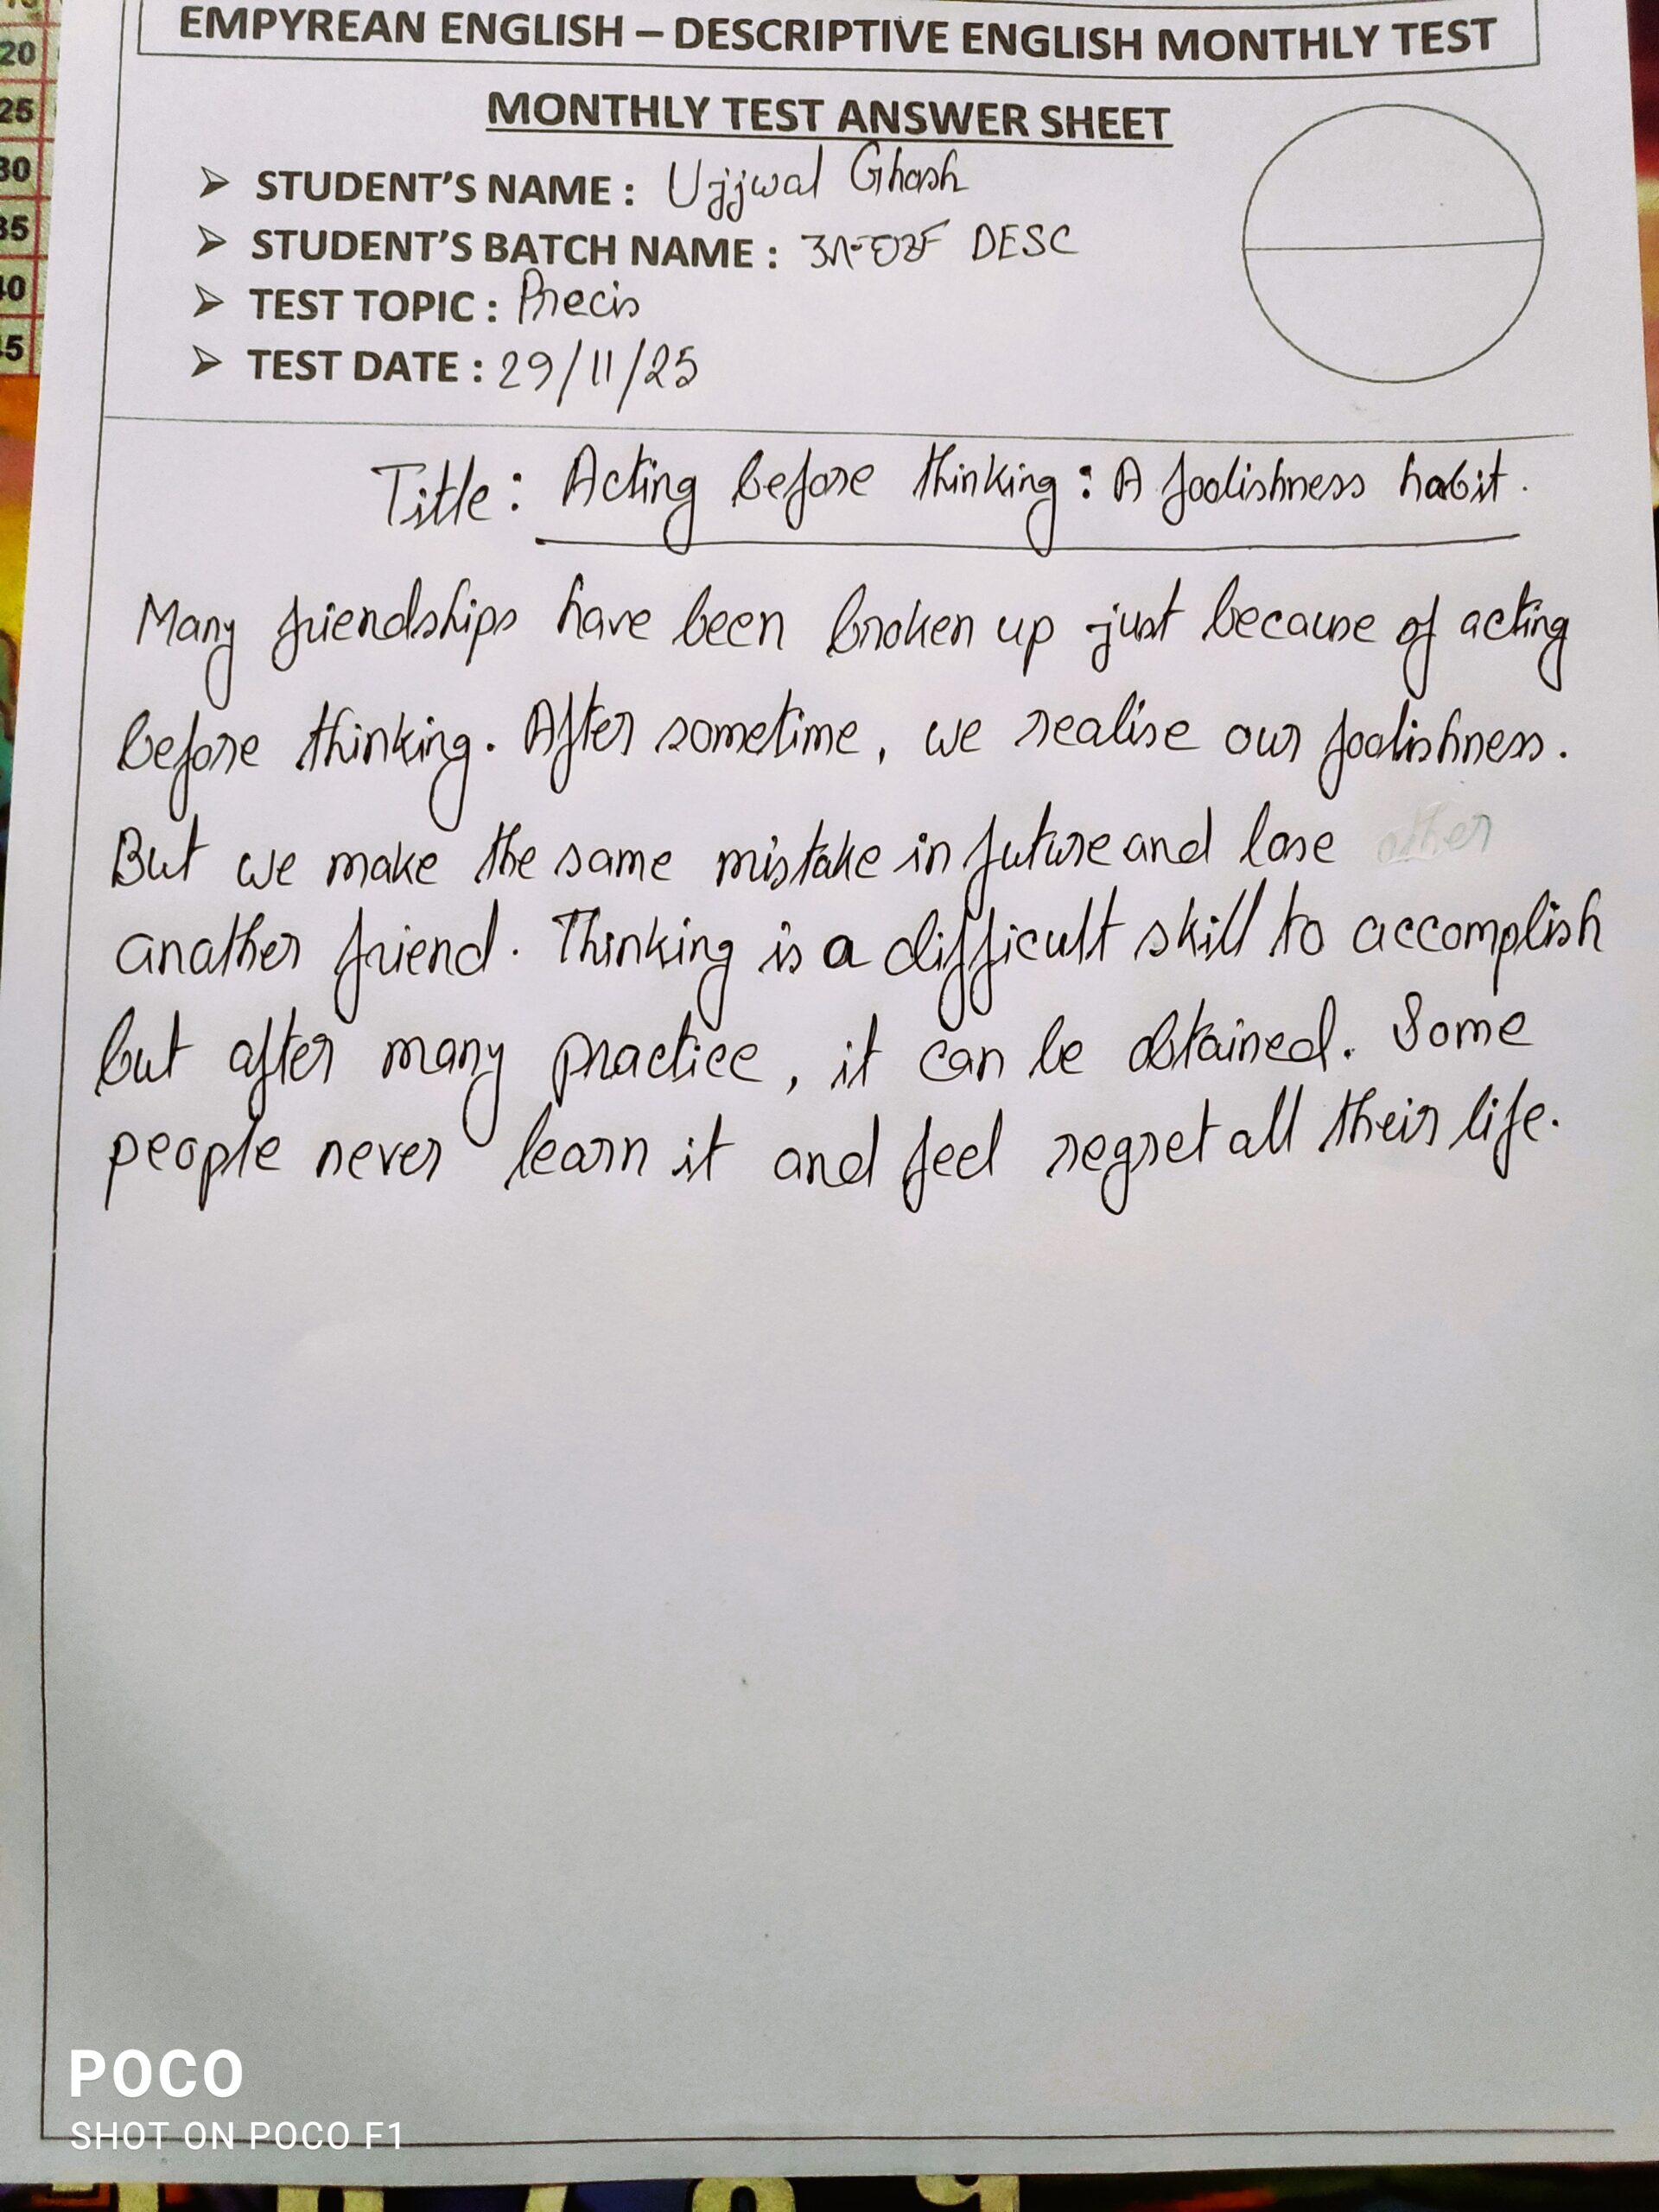 20
25
30
35
40
45
EMPYREAN ENGLISH – DESCRIPTIVE ENGLISH MONTHLY TEST
MONTHLY TEST ANSWER SHEET
➢ STUDENT'S NAME : Ujjwal Ghosh
➢ STUDENT'S BATCH NAME : DESC
➢ TEST TOPIC : Precis
➢ TEST DATE : 29/11/25
Title : Acting before thinking : A foolishness habit.
Many friendships have been broken up just because of acting
before thinking. After sometime, we realise our foolishness.
But we make the same mistake in future and lose other
another friend. Thinking is a difficult skill to accomplish
but after many practice, it can be obtained. Some
people never learn it and feel regret all their life.
POCO
SHOT ON POCO F1